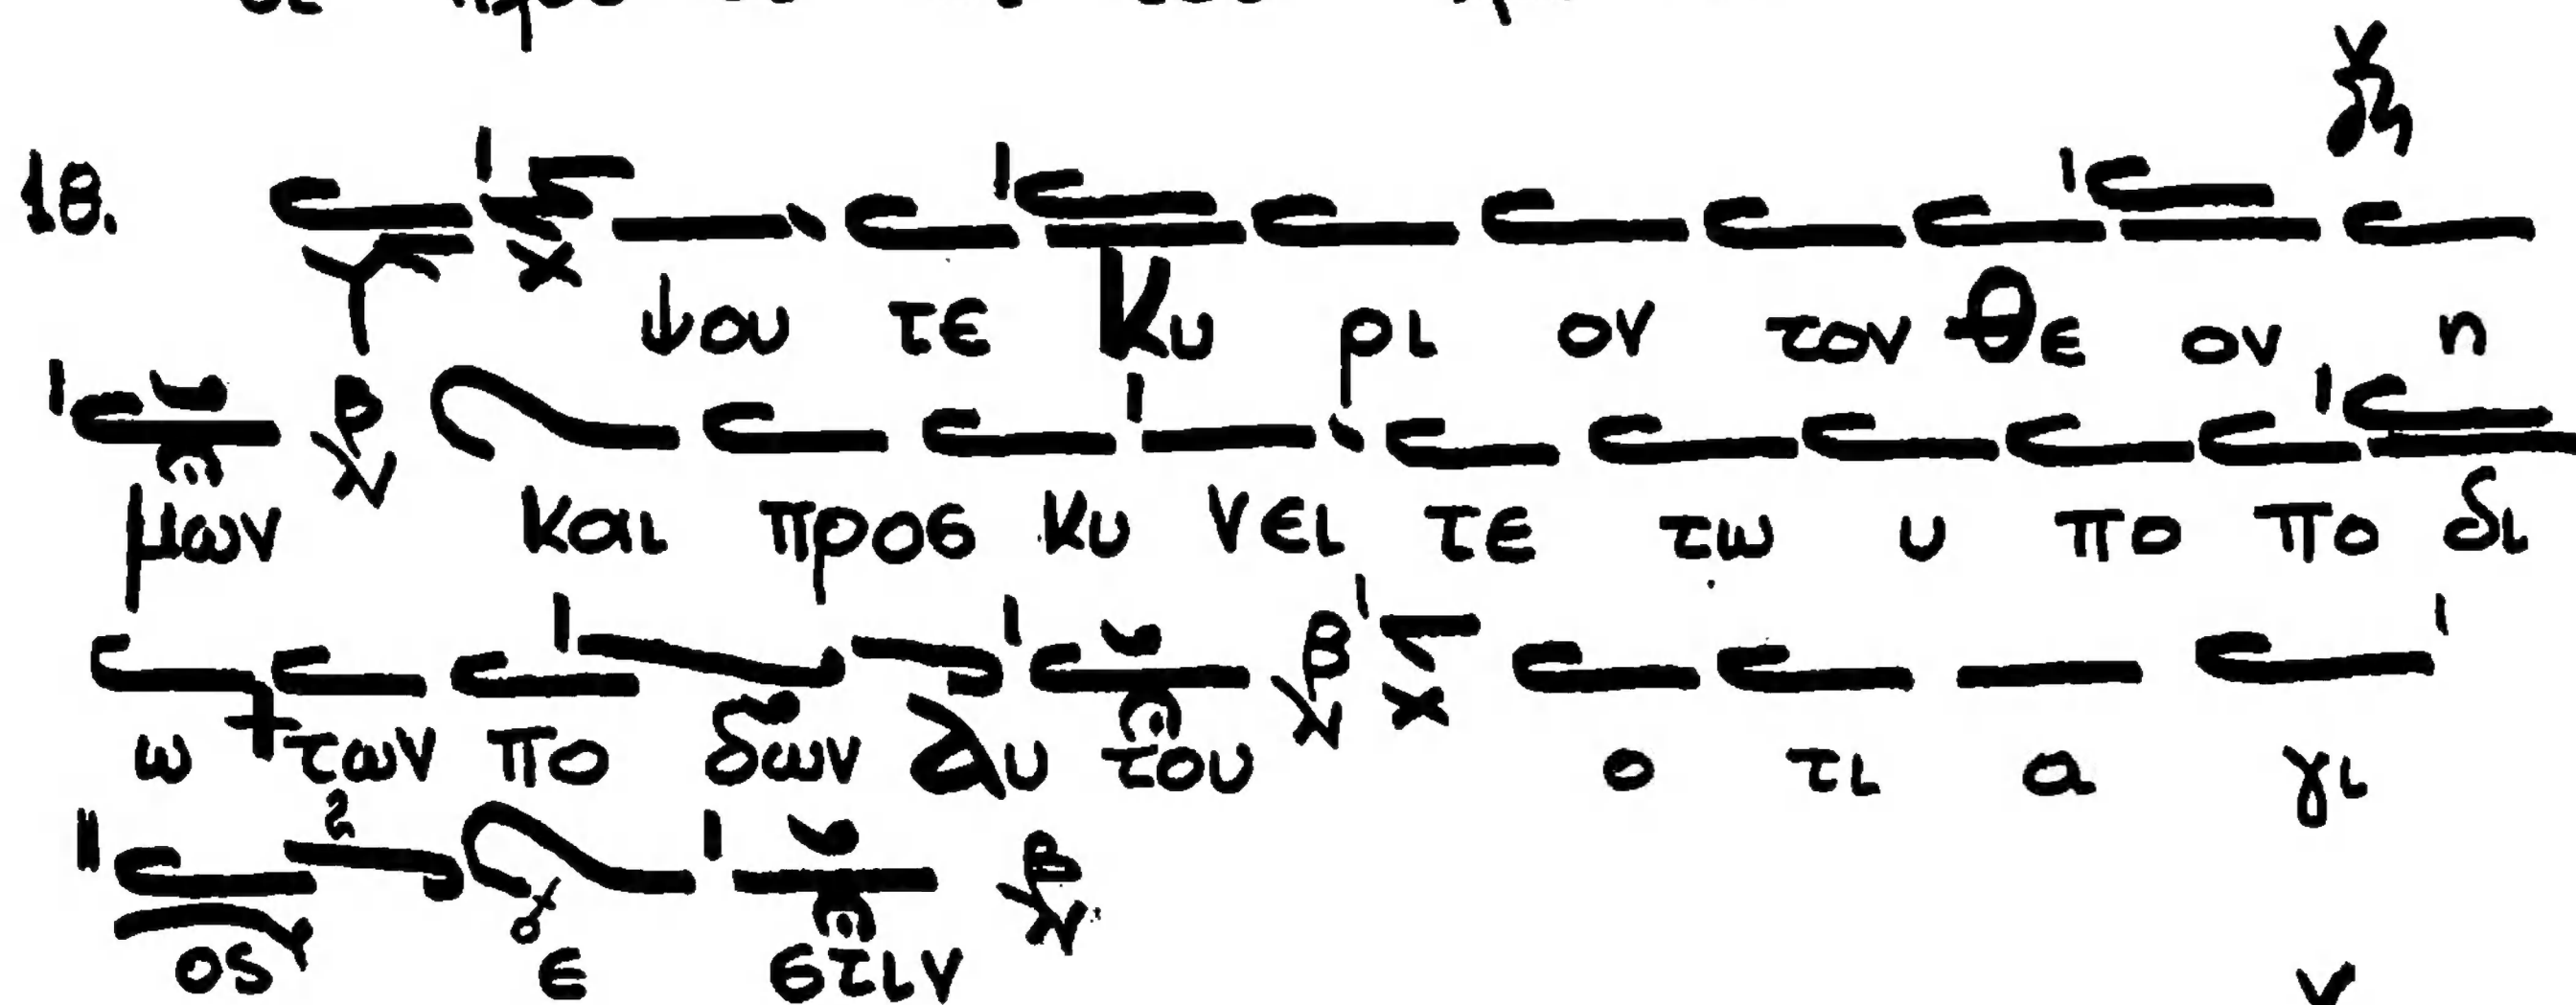 18. Υ ψου τε Κυ ρι ον τον Θε ον η
μων και προσ κυ νει τε τω υ πο πο δι
ω των πο δων Αυ του ο τι α γι
ος ε στιν